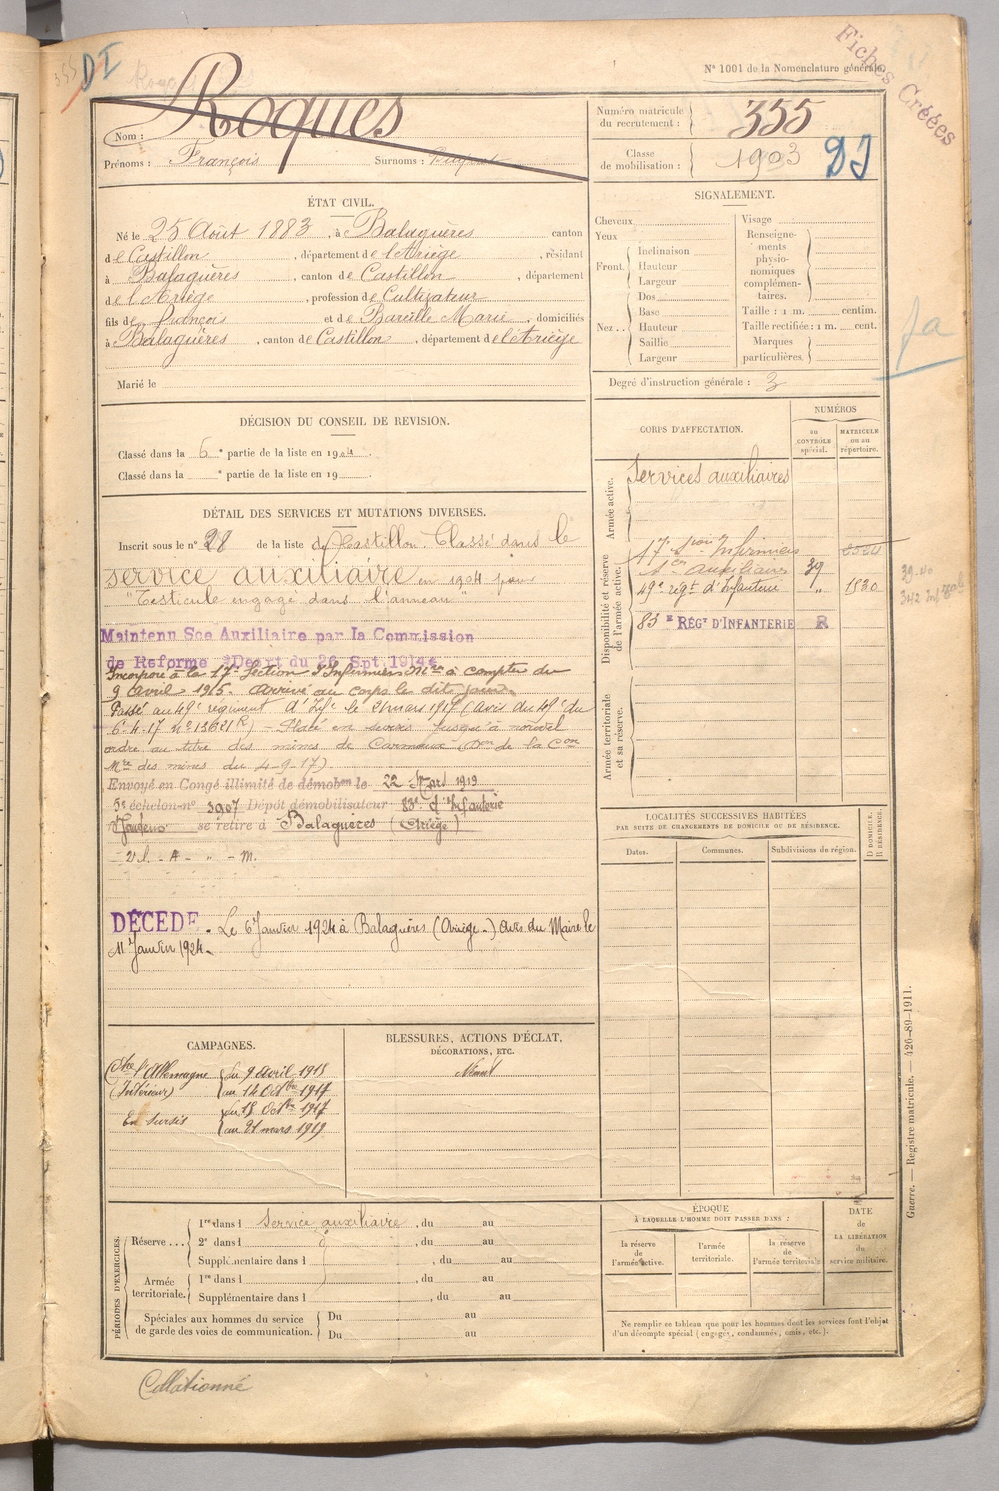 DI
Fiches Créées
N° 1001 de la Nomenclature générale
Nom : Roques
Prénoms : François Surnoms :
Numéro matricule du recrutement : 355
Classe de mobilisation : 1903
DI
ÉTAT CIVIL.
Né le 25 Août 1883, à Balaguères canton
de Castillon, département de l'Ariège, résidant
à Balaguères, canton de Castillon, département
de l'Ariège, profession de Cultivateur
fils de François et de Bareille Marie, domiciliés
à Balaguères, canton de Castillon, département de l'Ariège
Marié le
SIGNALEMENT.
Cheveux
Yeux
Front. Inclinaison
Hauteur
Largeur
Nez.. Dos
Base
Hauteur
Saillie
Largeur
Visage
Renseignements physionomiques complémentaires.
Taille : 1 m. centim.
Taille rectifiée : 1 m. cent.
Marques particulières.
Degré d'instruction générale : 3
DÉCISION DU CONSEIL DE REVISION.
Classé dans la 6e partie de la liste en 1904.
Classé dans la e partie de la liste en 19
DÉTAIL DES SERVICES ET MUTATIONS DIVERSES.
Inscrit sous le n° 28 de la liste de Castillon. Classé dans le
service auxiliaire en 1904 pour
"Testicule engagé dans l'anneau"
Maintenu Sce Auxiliaire par la Commission
de Reforme Décrt du 26 Spt 1914
Incorporé à la 17e Section d'Infirmiers Mres à compter du
9 avril 1915. Arrivé au corps le dit jour.
Passé au 49e régiment d'Infie le 21 mars 1917 (Avis du 49e du
6-4-17 n° 13621 R) - Placé en sursis jusqu'à nouvel
ordre au titre des mines de Carmaux (Don de la Con
Mre des mines du 4-9-17)
Envoyé en Congé illimité de démobon le 22 Mars 1919
5e échelon n° 3907 Dépôt démobilisateur 83e d'Infanterie
se retire à Balaguères (Ariège)
DÉCÉDÉ. Le 6 Janvier 1924 à Balaguères (Ariège.) Avis du Maire le
11 Janvier 1924.
CORPS D'AFFECTATION.
NUMÉROS
au CONTRÔLE spécial.
MATRICULE ou au répertoire.
Armée active.
Services auxiliaires
Disponibilité et réserve de l'armée active.
17e Son Infirmiers 2524
Auxiliaire 39
49e régt d'Infanterie " 1830
83e RÉGt D'INFANTERIE R
Armée territoriale et sa réserve.
LOCALITÉS SUCCESSIVES HABITÉES
PAR SUITE DE CHANGEMENTS DE DOMICILE OU DE RÉSIDENCE.
Dates. Communes. Subdivisions de région.
D DOMICILE. R RÉSIDENCE.
CAMPAGNES.
Ctre l'Allemagne du 9 avril 1915
(Intérieur) au 14 Octbre 1917
En sursis du 15 Octbre 1917
au 21 mars 1919
BLESSURES, ACTIONS D'ÉCLAT,
DÉCORATIONS, ETC.
Néant
PÉRIODES D'EXERCICES.
Réserve... 1re dans l service auxiliaire, du au
2e dans l, du au
Supplémentaire dans l, du au
Armée territoriale. 1re dans l, du au
Supplémentaire dans l, du au
Spéciales aux hommes du service Du au
de garde des voies de communication. Du au
ÉPOQUE
À LAQUELLE L'HOMME DOIT PASSER DANS :
la réserve de l'armée active.
l'armée territoriale.
la réserve de l'armée territoriale
DATE
de
LA LIBÉRATION
du
service militaire.
Ne remplir ce tableau que pour les hommes dont les services font l'objet
d'un décompte spécial (engagés, condamnés, omis, etc.).
Guerre. — Registre matricule. — 426-89-1911.
Collationné